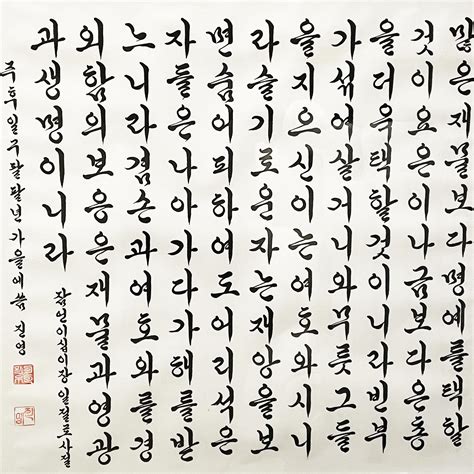 많은재물보다명예를택할
것이요은이나금보다은총
을더욱택할것이니라빈부
가섞여살거니와무릇그들
을지으신이는여호와시니
라슬기로운자는재앙을보
면숨어피하여도어리석은
자들은나아가다가해를받
느니라겸손과여호와를경
외함의보응은재물과영광
과생명이니라
잠언이십이장일절로사절
주후일구팔팔년가을에씀 진영